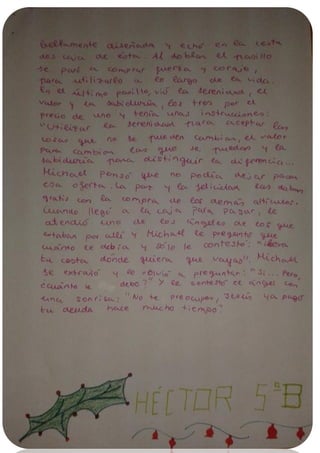 bellamente diseñada y echó en la cesta
dos cajas de ésta. Al doblar el pasillo
se paró a comprar fuerza y coraje,
para utilizarlo a lo largo de la vida.
En el último pasillo, vió la serenidad, el
valor y la sabiduría, los tres por el
precio de uno y tenía unas instrucciones:
"Utilizar la serenidad para aceptar las
cosas que no se pueden cambiar, el valor
para cambiar las que se puedan y la
sabiduría para distinguir la diferencia...
Michael pensó que no podía dejar pasar
esa oferta. La paz y la felicidad las daban
gratis con la compra de los demás artículos.
Cuando llegó a la caja para pagar, le
atendió uno de los ángeles de los que
estaban por allí y Michael le preguntó que
cuánto le debía y sólo le contestó: "
tu cesta donde quiera que vayas", Michael
se extrañó y le volvió a preguntar: "Sí... Pero,
¿cuánto le debo?" Y le contestó el ángel con
una sonrisa: "No te preocupes, Jesús ya pagó
tu deuda hace mucho tiempo"
HÉCTOR 5ºB